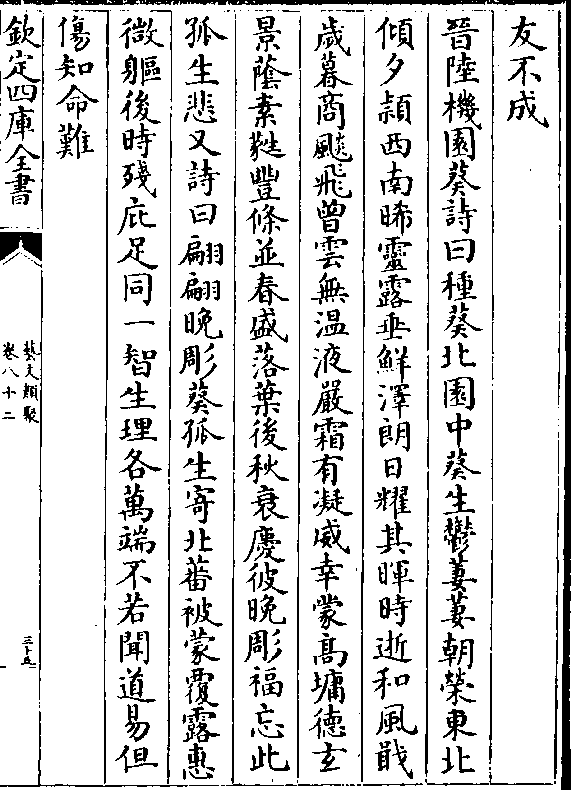 友不成
晉陸機園葵詩曰種葵北園中葵生鬱萋萋朝榮東北
傾夕頴西南晞靈露垂鮮澤朗日耀其暉時逝和風戢
歲暮商飈飛曾雲無温液嚴霜有凝威幸蒙髙墉德玄
景蔭素蕤豐條並春盛落葉後秋衰慶彼晚彫福忘此
孤生悲又詩曰翩翩晚彫葵孤生寄北蕃被蒙覆露惠
微軀後時殘庇足同一智生理各萬端不若聞道易但
傷知命難
欽定四庫全書
藝文類聚
卷八十二
三十五